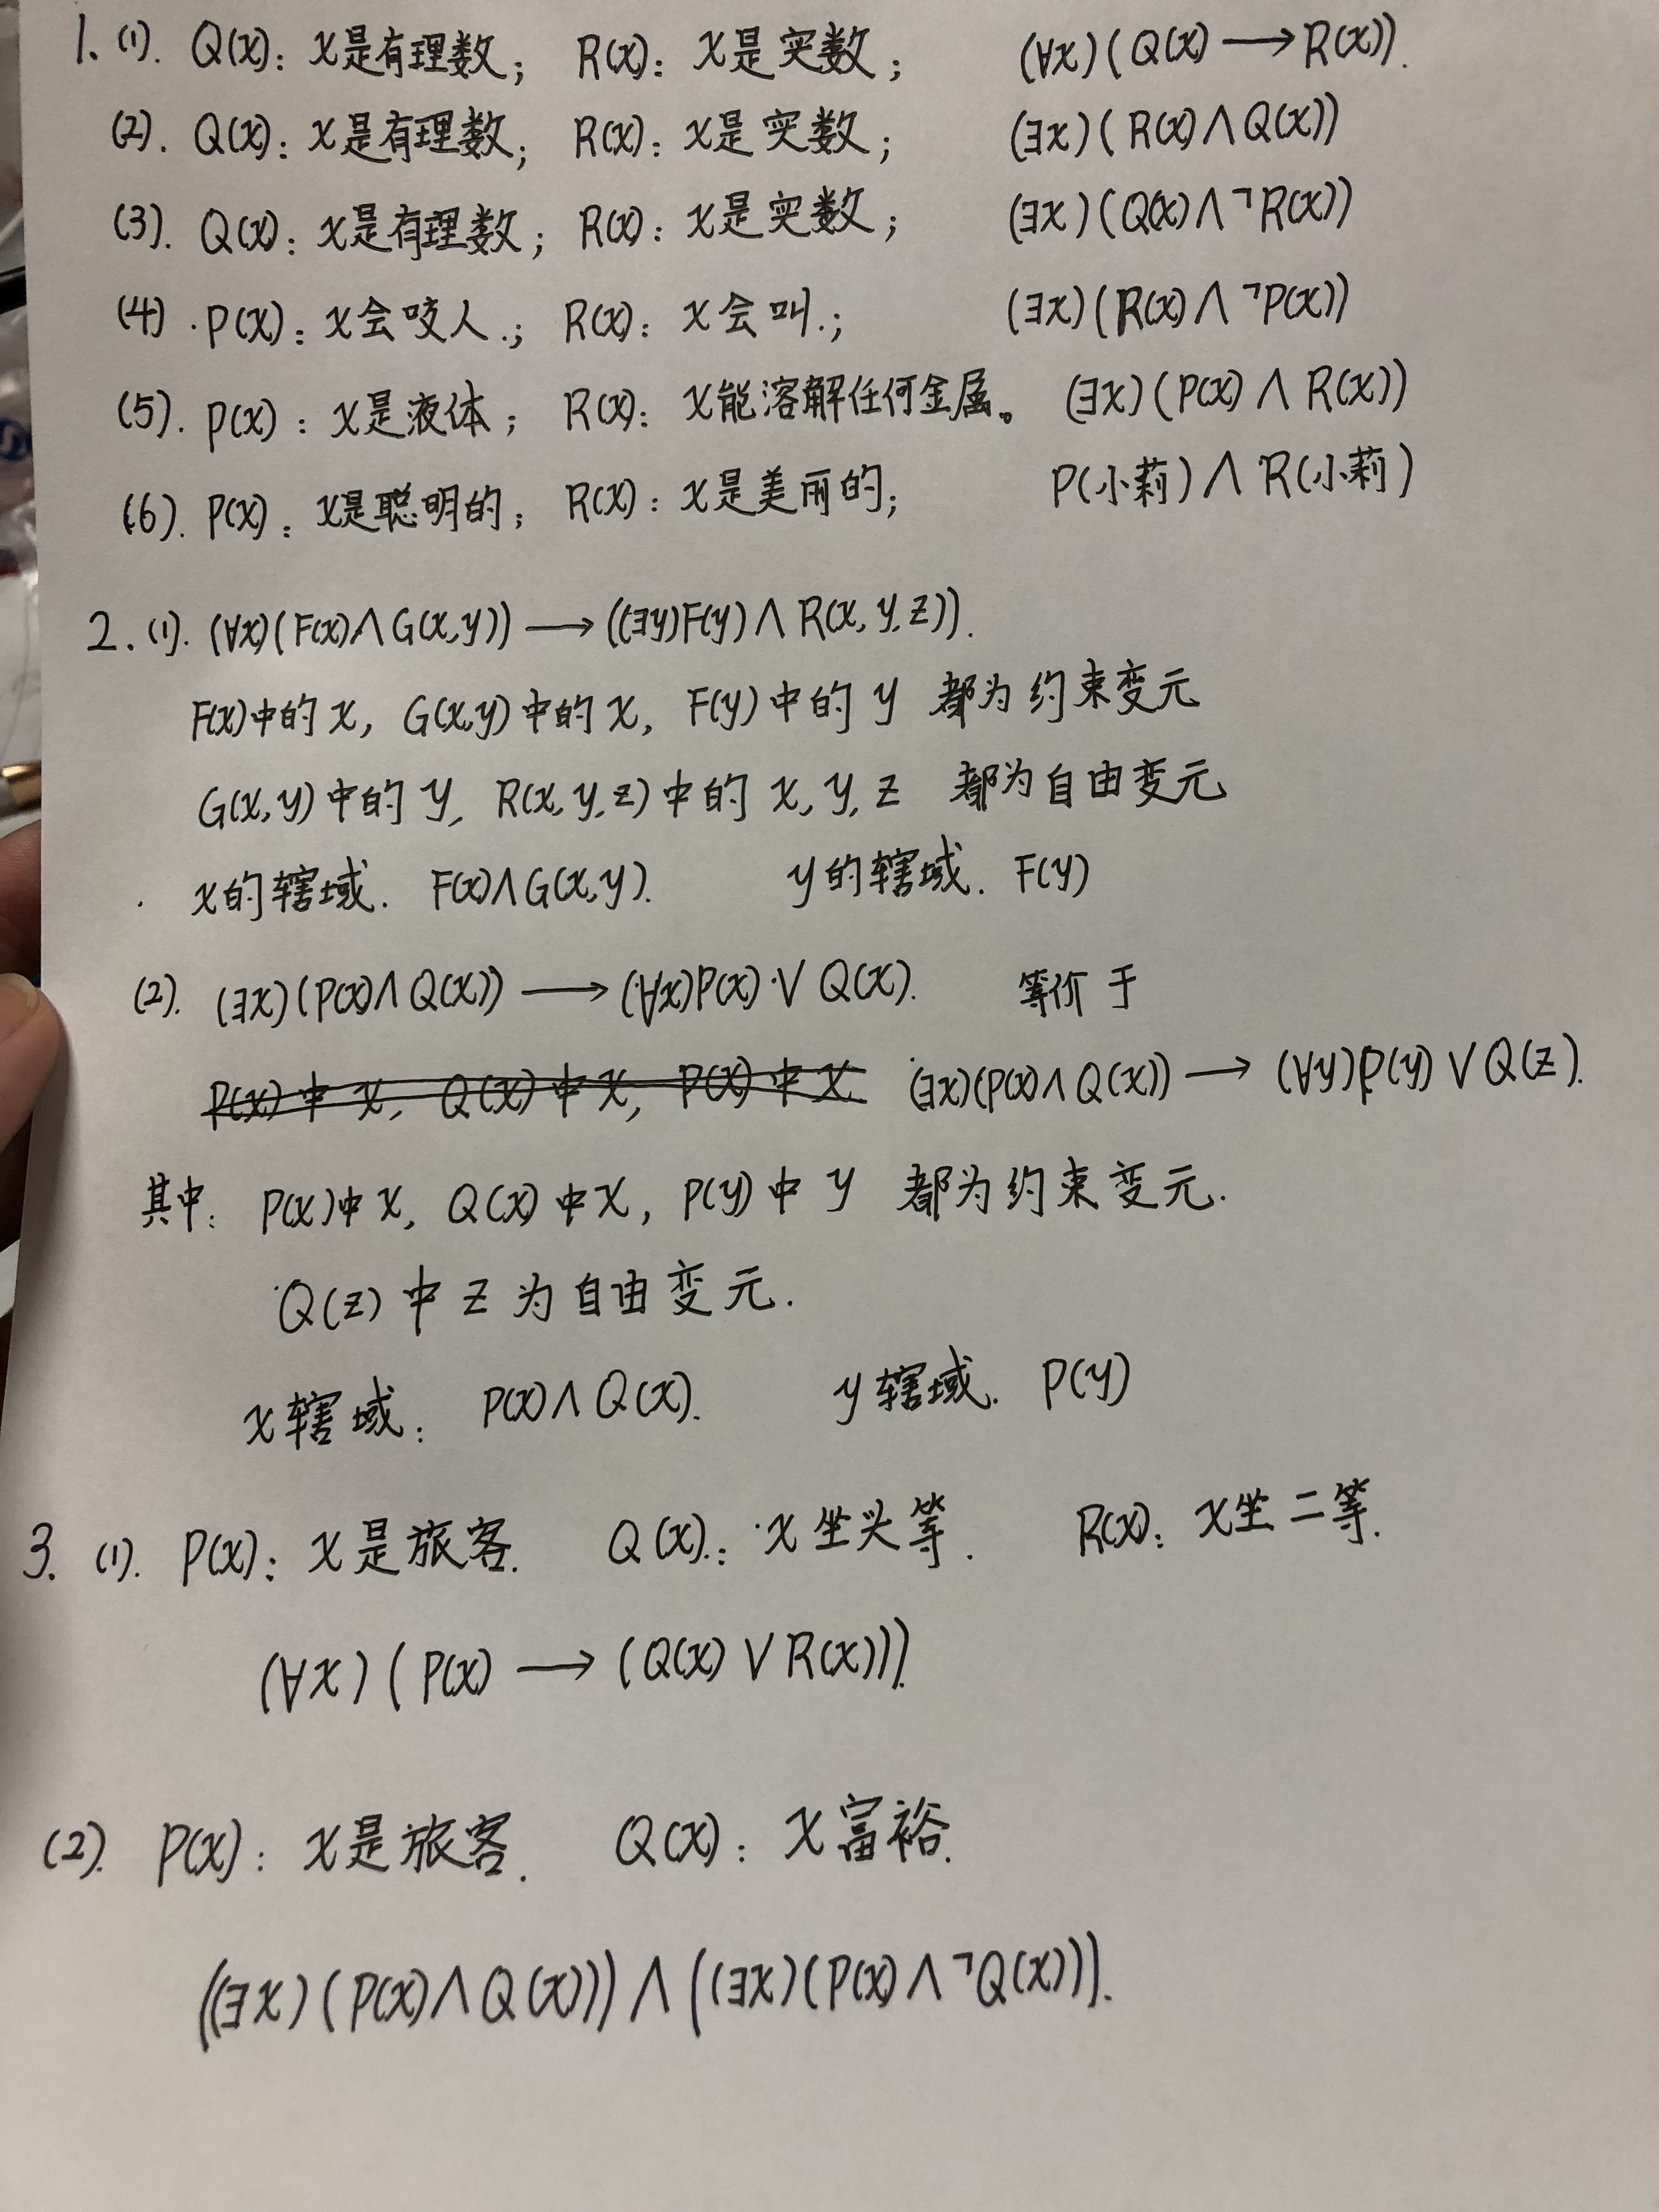 1. (1). Q(x): x是有理数; R(x): x是实数; (∀x)(Q(x)⟶R(x)).
(2). Q(x): x是有理数; R(x): x是实数; (∃x)(R(x)∧Q(x))
(3). Q(x): x是有理数; R(x): x是实数; (∃x)(Q(x)∧¬R(x))
(4). P(x): x会咬人.; R(x): x会叫.; (∃x)(R(x)∧¬P(x))
(5). P(x): x是液体; R(x): x能溶解任何金属。 (∃x)(P(x)∧R(x))
(6). P(x): x是聪明的; R(x): x是美丽的; P(小莉)∧R(小莉)
2. (1). (∀x)(F(x)∧G(x,y))⟶((∃y)F(y)∧R(x,y,z)).
F(x)中的x, G(x,y)中的x, F(y)中的y 都为约束变元
G(x,y)中的y, R(x,y,z)中的x,y,z 都为自由变元
x的辖域. F(x)∧G(x,y). y的辖域. F(y)
(2). (∃x)(P(x)∧Q(x))⟶(∀x)P(x)∨Q(x). 等价于
P(x)中x, Q(x)中x, P(x)中x (∃x)(P(x)∧Q(x))⟶(∀y)P(y)∨Q(z).
其中: P(x)中x, Q(x)中x, P(y)中y 都为约束变元.
Q(z)中z为自由变元.
x辖域: P(x)∧Q(x). y辖域. P(y)
3. (1). P(x): x是旅客. Q(x): x坐头等. R(x): x坐二等.
(∀x)(P(x)⟶(Q(x)∨R(x))).
(2). P(x): x是旅客. Q(x): x富裕.
((∃x)(P(x)∧Q(x)))∧((∃x)(P(x)∧¬Q(x))).